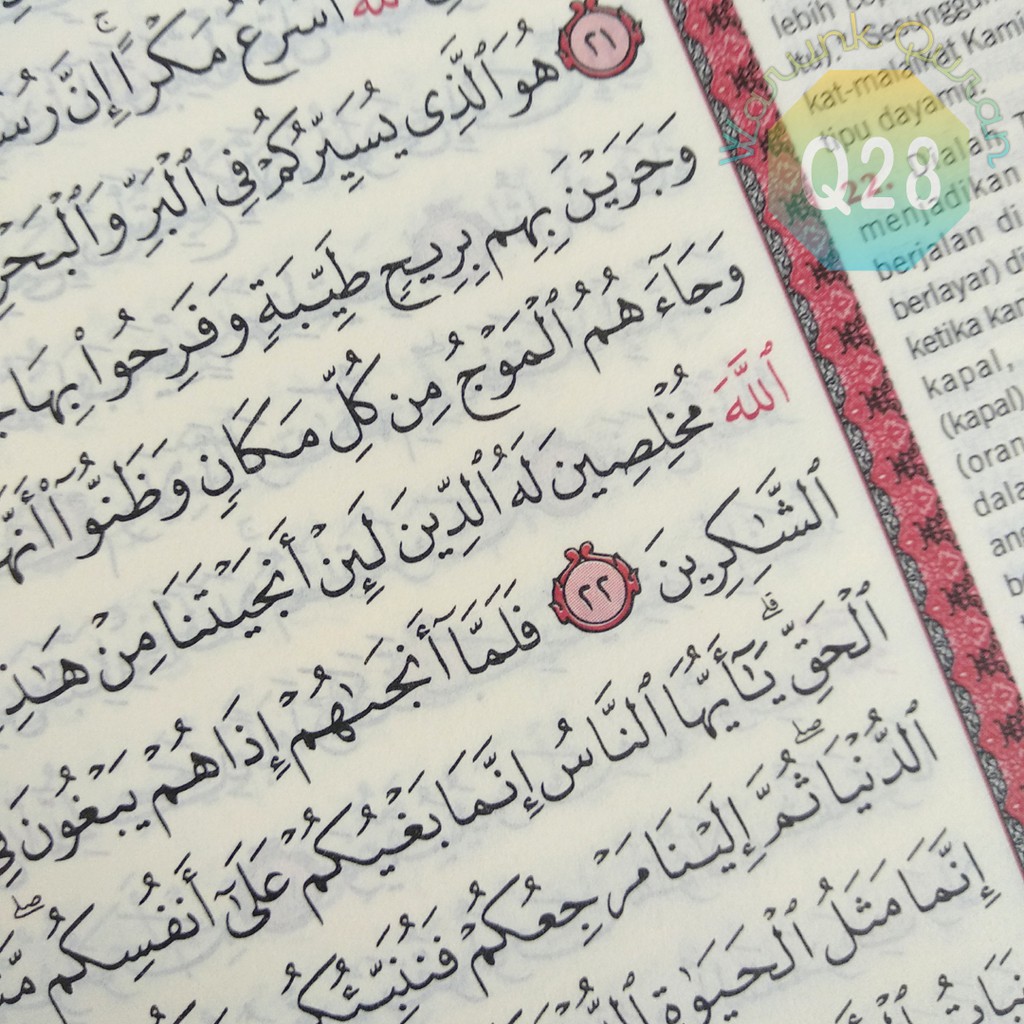 ٱللَّهُ أَسْرَعُ مَكْرًا ۚ إِنَّ
٢١ هُوَ ٱلَّذِى يُسَيِّرُكُمْ فِى ٱلْبَرِّ وَٱلْبَحْرِ
وَجَرَيْنَ بِهِم بِرِيحٍ طَيِّبَةٍ وَفَرِحُوا۟ بِهَا
وَجَآءَهُمُ ٱلْمَوْجُ مِن كُلِّ مَكَانٍ وَظَنُّوٓا۟
ٱللَّهَ مُخْلِصِينَ لَهُ ٱلدِّينَ لَئِنْ أَنجَيْتَنَا مِنْ
ٱلشَّـٰكِرِينَ ٢٢ فَلَمَّآ أَنجَىٰهُمْ إِذَا هُمْ يَبْغُونَ
ٱلْحَقِّ ۗ يَـٰٓأَيُّهَا ٱلنَّاسُ إِنَّمَا بَغْيُكُمْ عَلَىٰٓ أَنفُسِكُم ۖ
ٱلدُّنْيَا ۖ ثُمَّ إِلَيْنَا مَرْجِعُكُمْ
إِنَّمَا مَثَلُ ٱلْحَيَوٰةِ
lebih
itu)."
kat-malaikat Kami
tipu dayamu.
22. Dialah
menjadikan
berjalan di
berlayar) di
ketika
kapal,
(kapal)
Warunk Quran
Q28